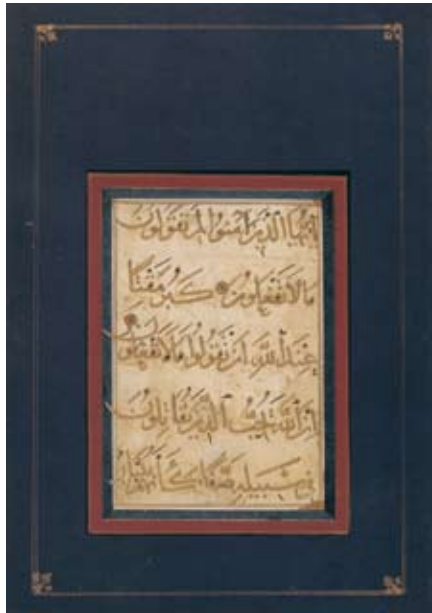 أَيُّهَا الَّذِينَ آمَنُوا لِمَ تَقُولُونَ
مَا لَا تَفْعَلُونَ كَبُرَ مَقْتًا
عِنْدَ اللَّهِ أَنْ تَقُولُوا مَا لَا تَفْعَلُونَ
إِنَّ اللَّهَ يُحِبُّ الَّذِينَ يُقَاتِلُونَ
فِي سَبِيلِهِ صَفًّا كَأَنَّهُمْ بُنْيَانٌ